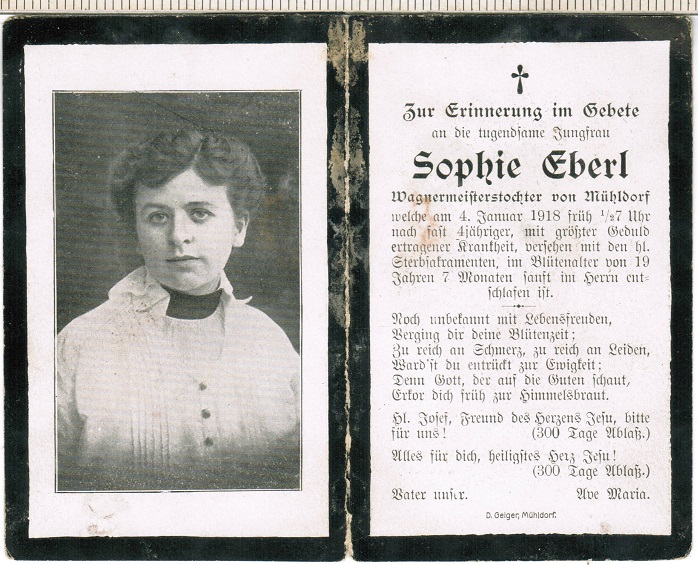 Zur Erinnerung im Gebete
an die tugendsame Jungfrau
Sophie Eberl
Wagnermeisterstochter von Mühldorf
welche am 4. Januar 1918 früh ½7 Uhr
nach fast 4jähriger, mit größter Geduld
ertragener Krankheit, versehen mit den hl.
Sterbsakramenten, im Blütenalter von 19
Jahren 7 Monaten sanft im Herrn ent-
schlafen ist.
Noch unbekannt mit Lebensfreuden,
Verging dir deine Blütenzeit;
Zu reich an Schmerz, zu reich an Leiden,
Ward'st du entrückt zur Ewigkeit;
Denn Gott, der auf die Guten schaut,
Erkor dich früh zur Himmelsbraut.
Hl. Josef, Freund des Herzens Jesu, bitte
für uns! (300 Tage Ablaß.)
Alles für dich, heiligstes Herz Jesu!
(300 Tage Ablaß.)
Vater unser. Ave Maria.
D. Geiger, Mühldorf.